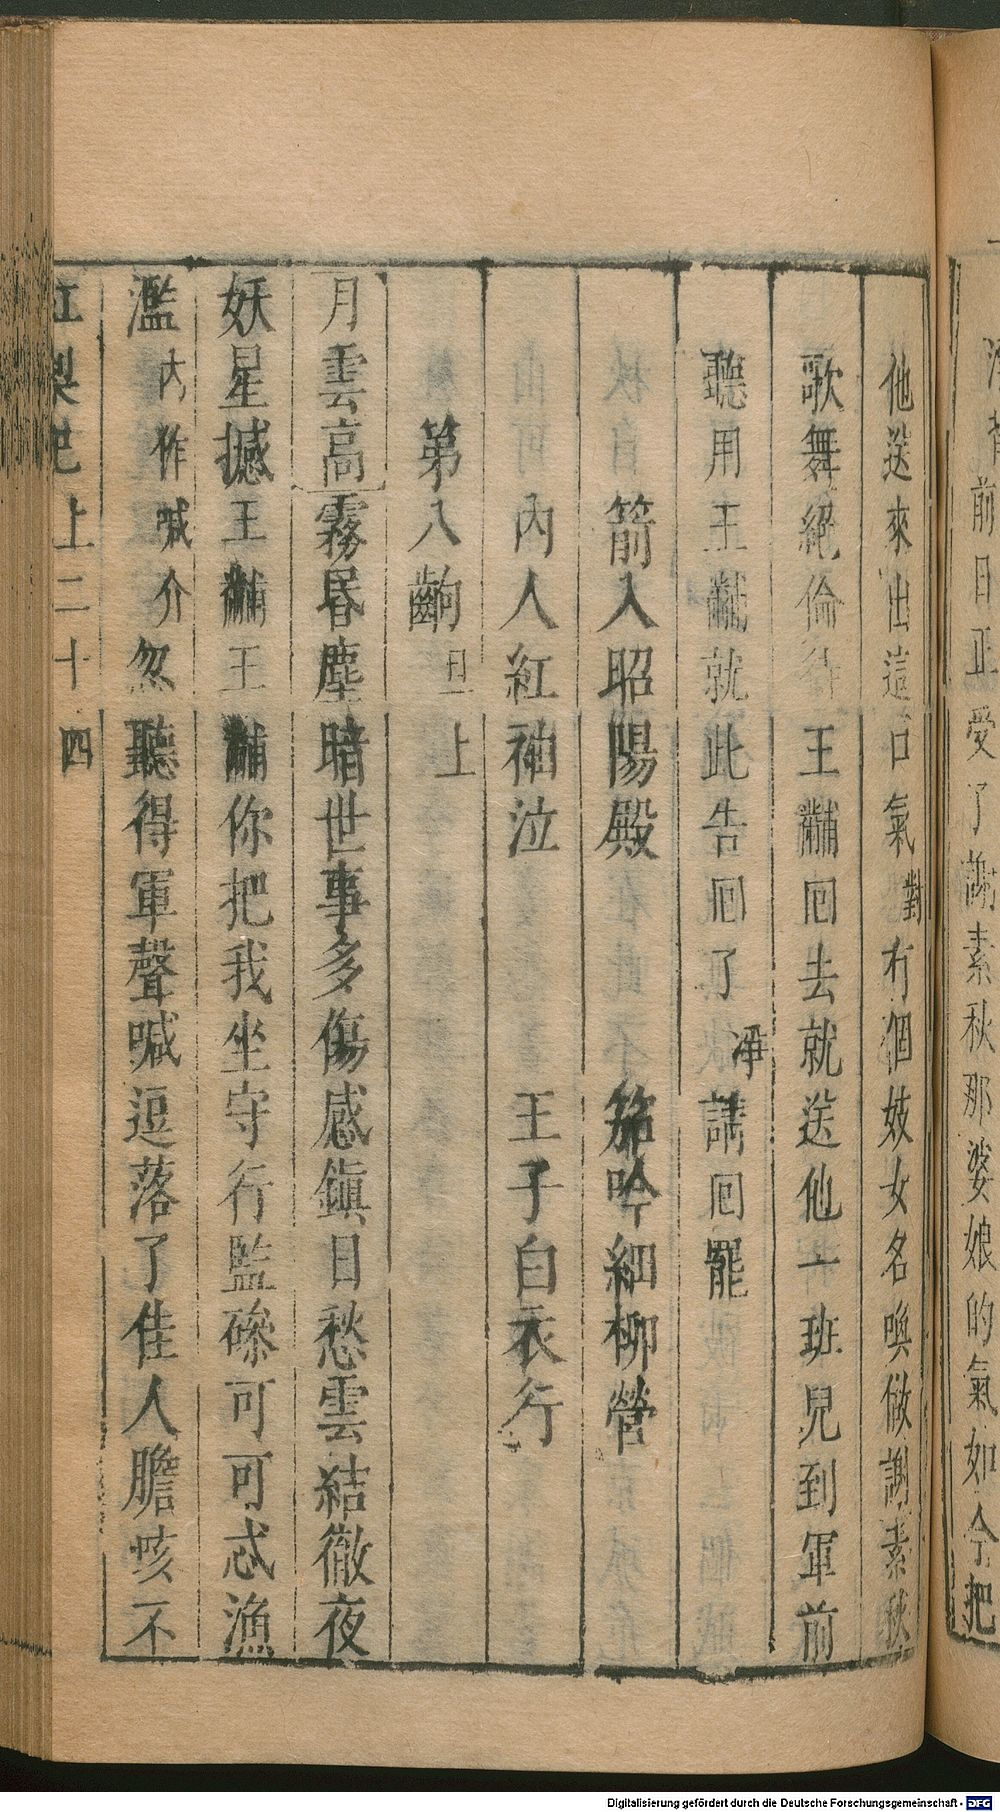 淨背前日正受了謝素秋那婆娘的氣如今把
他送來出這口氣對有個妓女名喚做謝素秋
歌舞絕倫待王黼回去就送他一班兒到軍前
聽用王黼就此告回了淨請回罷
箭入昭陽殿 笳吟細柳營
內人紅袖泣 王子白衣行
第八齣旦上
月雲高霧昬塵暗世事多傷感鎭日愁雲結徹夜
妖星撼王黼王黼你把我坐守行監磣可可忒漁
濫內作喊介忽聽得軍聲喊逗落了佳人膽咳不
紅梨記上二十四
Digitalisierung gefördert durch die Deutsche Forschungsgemeinschaft - DFG